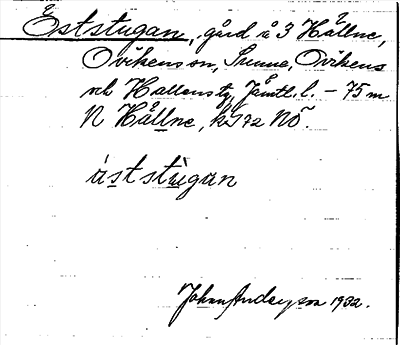 Eststugan, gård å 3 Hållne,
Ovikens sn, Sunne, Ovikens
och Hallens tg, Jämtl. l. – 75 m
N Hållne, kg 72 NÖ
äststùgan
Johan Anderson 1932.